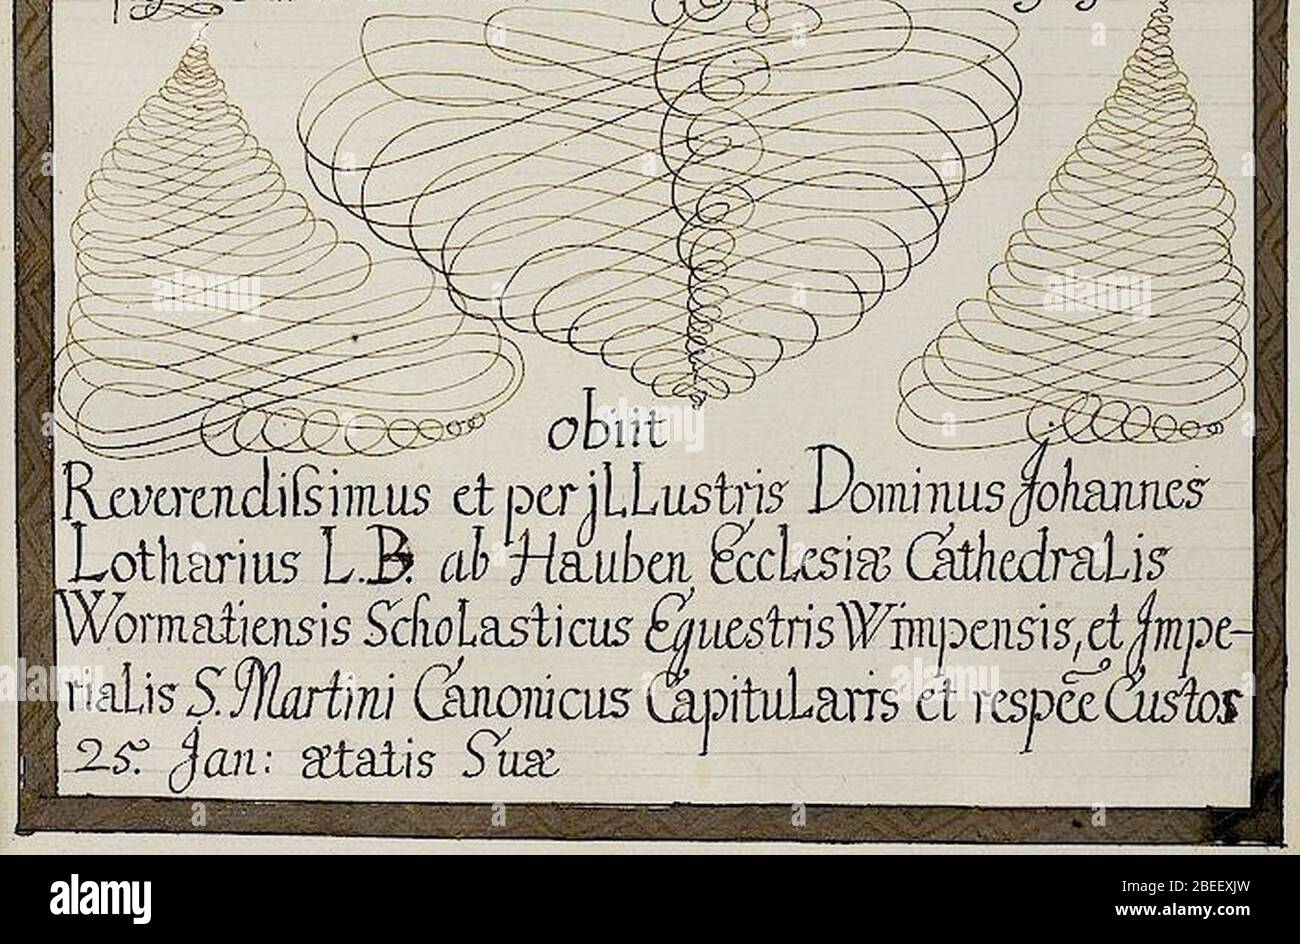 obiit
Reverendiſsimus et perjLLustris Dominus Johannes
Lotharius L.B. ab Hauben Ecclesiæ Cathedralis
Wormatiensis Scholasticus Equestris Wimpensis, et Jmpe-
rialis S. Martini Canonicus Capitularis et respēe Custos
25. Jan: ætatis Suæ
alamy
Image ID: 2BEEXJW
www.alamy.com